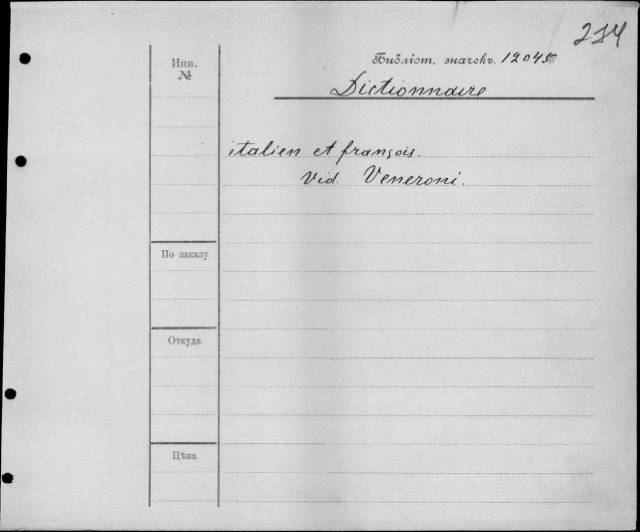 234
Инв. №
Библіот. значекъ. 12045
Dictionnaire
italien et françois.
Vid. Veneroni.
По заказу
Откуда
Цѣна